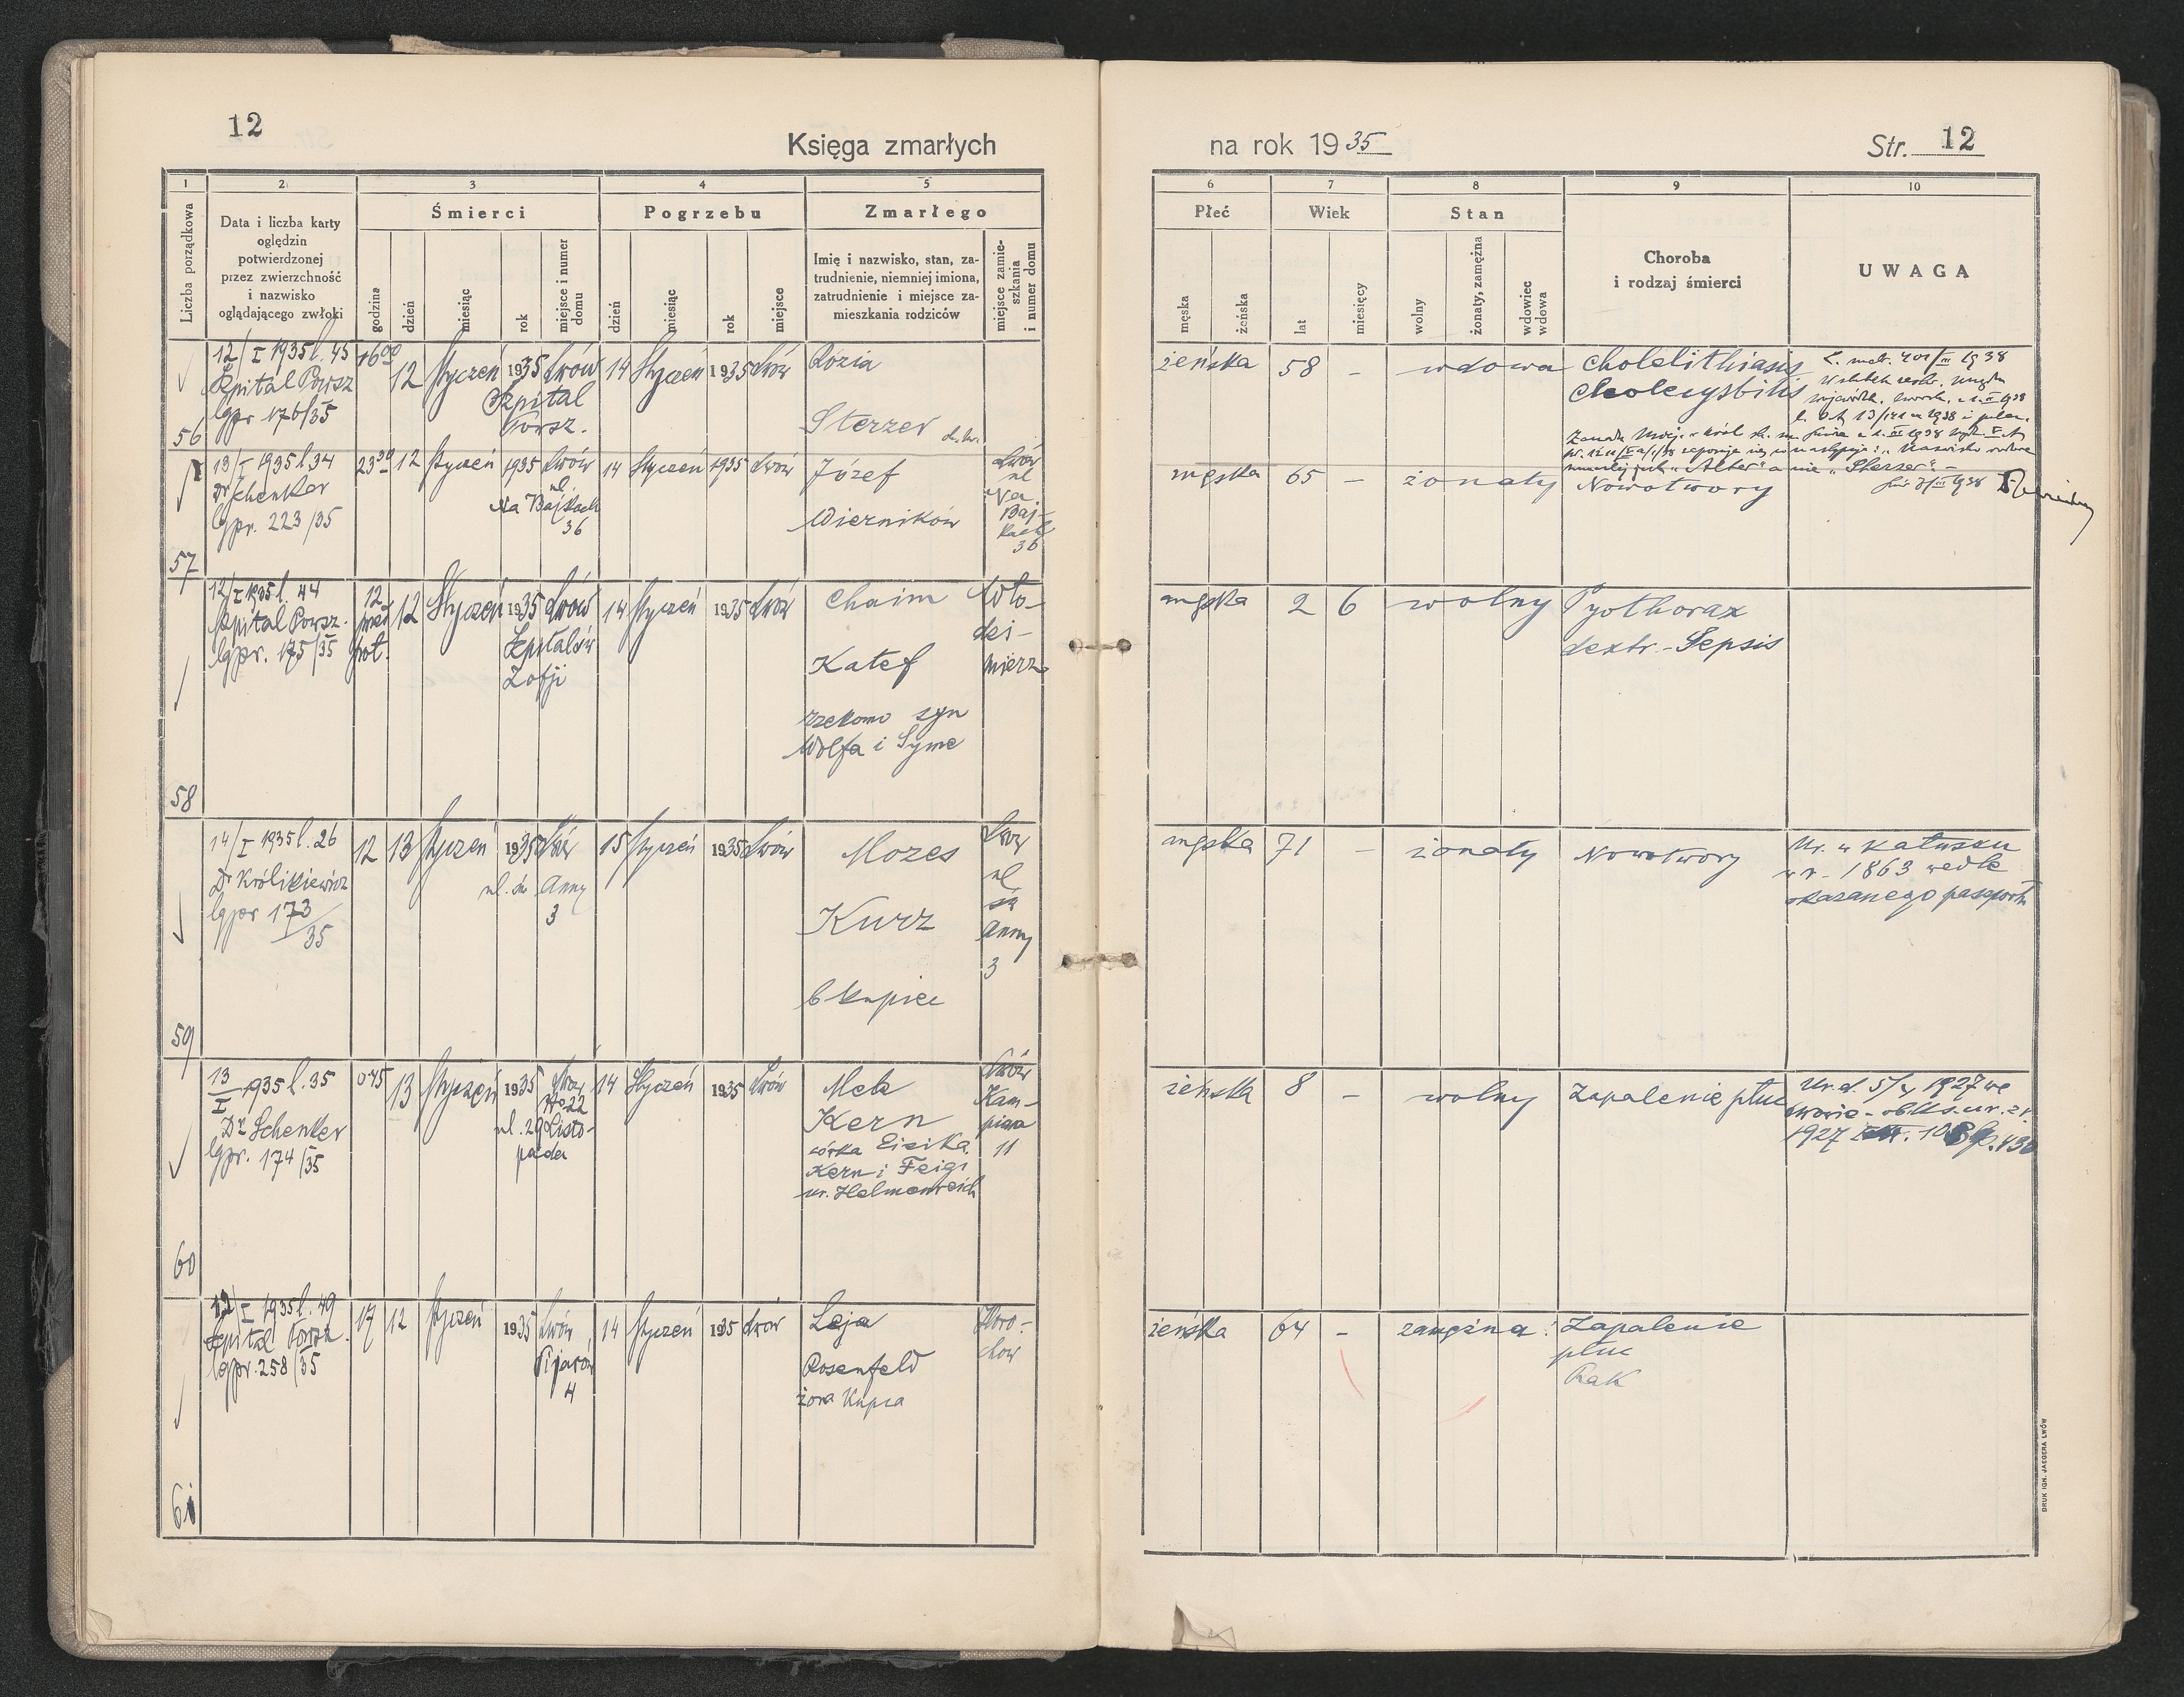 12
Księga zmarłych
na rok 1935
Str. 12
1 2 3 4 5
6 7 8 9 10
Liczba porządkowa
Data i liczba karty
oględzin
potwierdzonej
przez zwierzchność
i nazwisko
oglądającego zwłoki
Śmierci
godzina
dzień
miesiąc
rok
miejsce i numer
domu
Pogrzebu
dzień
miesiąc
rok
miejsce
Zmarłego
Imię i nazwisko, stan, za-
trudnienie, niemniej imiona,
zatrudnienie i miejsce za-
mieszkania rodziców
miejsce zamie-
szkania
i numer domu
Płeć
męska
żeńska
Wiek
lat
miesięcy
Stan
wolny
żonaty, zamężna
wdowiec
wdowa
Choroba
i rodzaj śmierci
UWAGA
56
12/I 1935 l. 45
Szpital Powsz
lgpr 176/35
16 00
12
Styczeń
1935
Lwów
Szpital
Powsz.
14
Styczeń
1935
Lwów
Rózia
Sterzer
żeńska
58
-
wdowa
Cholelithiasis
Cholecystitis
57
13/I 1935 l 34
Dr Schenker
lgpr. 223/35
23 30
12
Styczeń
1935
Lwów
ul.
Na Bajkach
36
14
Styczeń
1935
Lwów
Józef
Wierników
Lwów
ul
Na
Baj-
kach
36
męska
65
-
żonaty
Nowotwory
58
12/I 1935 l. 44
Szpital Powsz.
lgpr. 175/35
12
przed
poł.
12
Styczeń
1935
Lwów
Szpitalów
Zofji
14
Styczeń
1935
Lwów
Chaim
Katef
rzekomo syn
Wolfa i Syme
Wło-
dzi-
mierz
męska
2
6
wolny
Pyothorax
dextr. - Sepsis
59
14/I 1935 l. 26
Dr Królikiewicz
lgpr 173/35
12
13
Styczeń
1935
Lwów
ul. św Anny
3
15
Styczeń
1935
Lwów
Mozes
Kurz
b kupiec
Lwów
ul
św
Anny
3
męska
71
-
żonaty
Nowotwory
Ur. w Kałuszu
w r. 1863 wedle
okazanego paszportu
60
13/I 1935 l. 35
Dr Schenker
lgpr. 174/35
0 45
13
Styczeń
1935
Lwów
ul. 29 Listo-
pada
14
Styczeń
1935
Lwów
Mela
Kern
córka Eisika
Kern i Feigi
ur. Helmenreich
Lwów
11
żeńska
8
-
wolny
Zapalenie płuc
61
12/I 1935 l. 49
Szpital Powsz.
lgpr. 258/35
17
12
Styczeń
1935
Lwów
Pijarów
4
14
Styczeń
1935
Lwów
Leja
Rosenfeld
żona kupca
żeńska
64
-
zamężna
Zapalenie
płuc
Rak
DRUK IGN. JAEGERA LWÓW